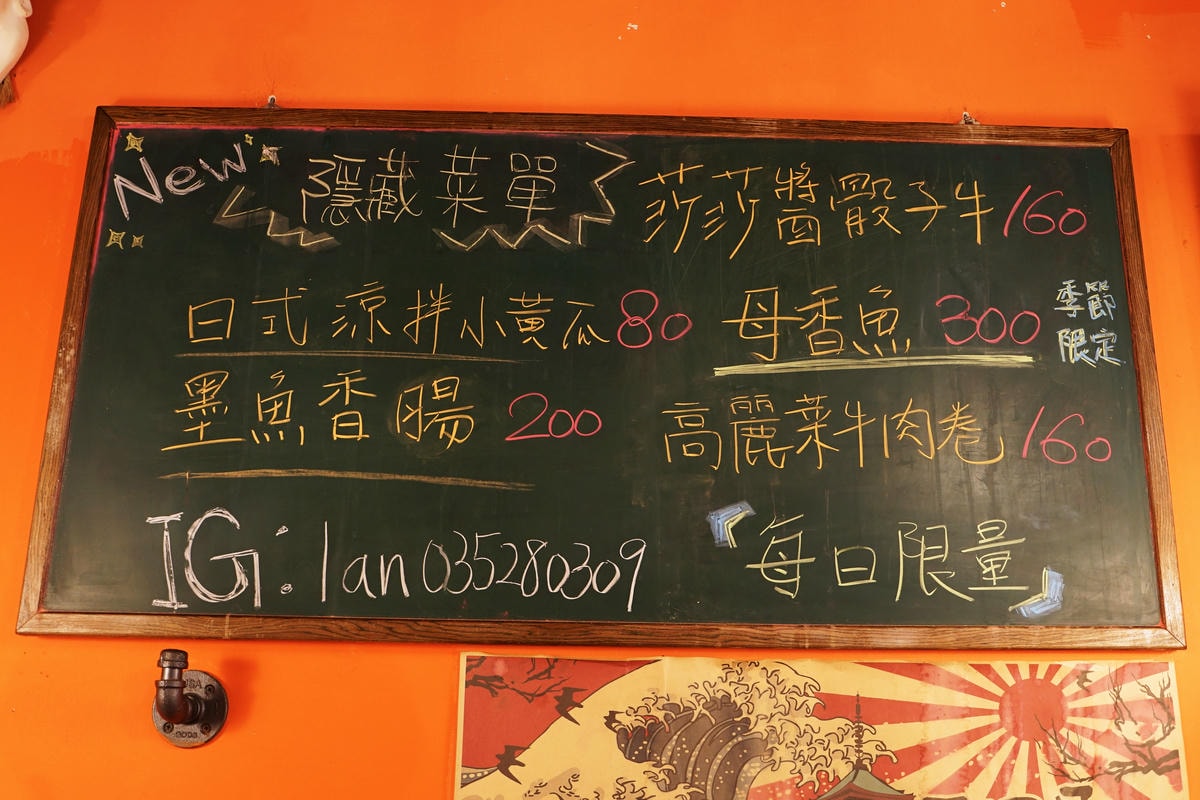 New 隱藏菜單
日式涼拌小黃瓜 80
墨魚香腸 200
IG: lan035280309
莎莎醬骰子牛 160
母香魚 300 季節限定
高麗菜牛肉卷 160
每日限量